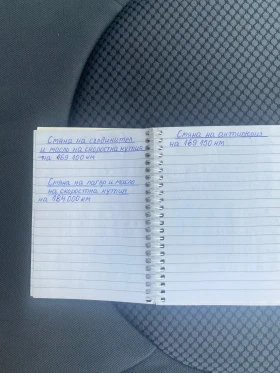 Смяна на съединител
и масло на скоростна кутия
на 169 100 км
Смяна на лагер и масло
на скоростна кутия
на 184 000 км
Смяна на антифриз
на 169 150 км